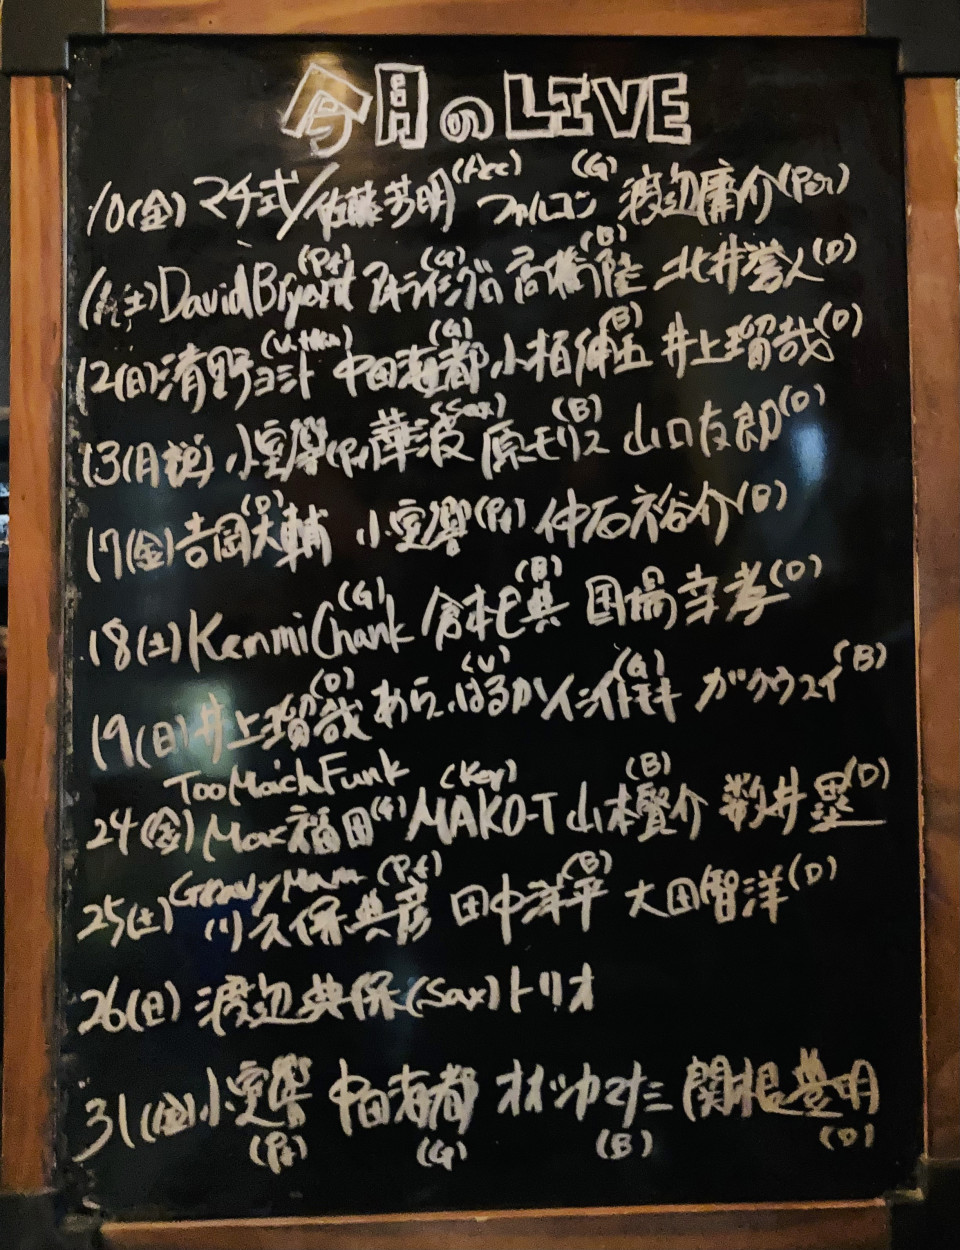 今月のLIVE
10(金) マチ式/佐藤芳明(Acc) ファルコン(G) 渡辺庸介(Per)
(土) David Bryant(Pf) (G) 高橋陸(B) 北井誉人(D)
12(日) 清野ヨシト 中田海都(G) 小栢伸五(B) 井上瑠哉(D)
13(月祝) 小室響(Pf) 華波(Sax) 原モリス(B) 山口友郎(D)
17(金) 吉岡大輔(D) 小室響(Pf) 仲石裕介(B)
18(土) Kenmi Chank(G) 倉本巳典(B) 国場幸孝(D)
19(日) 井上瑠哉(D) あら、はるか(V) イシイトモキ(G) ガクウスイ(B)
TooMaichFunk
24(金) Max福田(G) MAKO-T(Key) 山本賢介(B) 数井塁(D)
25(土) GravyMam 川久保典彦(Pf) 田中洋平(B) 大田智洋(D)
26(日) 渡辺典保(Sax)トリオ
31(金) 小室響(Pf) 中田海都(G) オオツカマナミ(B) 関根豊明(D)